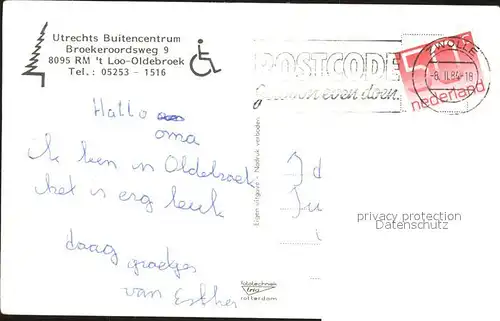 Utrechts Buitencentrum
Broekeroordsweg 9
8095 RM 't Loo-Oldebroek
Tel.: 05253 - 1516
POSTCODE
gewoon even doen.
ZWOLLE
-8.II.84-18
nederland
Hallo
oma
ik ben in Oldebroek
het is erg leuk
daag groetjes
van Esther
Eigen uitgave - Nadruk verboden
fototechniek
rotterdam
privacy protection
Datenschutz